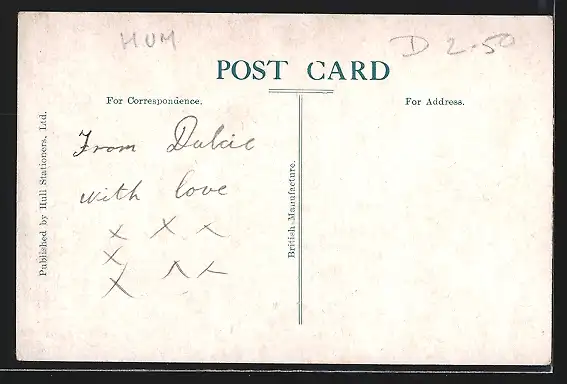 HUM
D 2-50
POST CARD
For Correspondence.
For Address.
From Dulcie
with love
x x x
x x x
x
British Manufacture.
Published by Hull Stationers, Ltd.